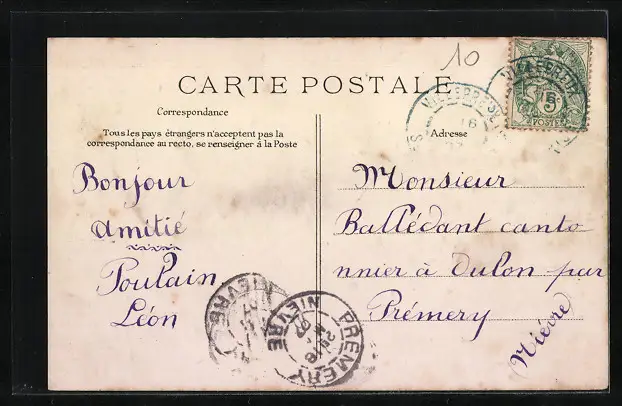 10
CARTE POSTALE
Correspondance
Tous les pays étrangers n'acceptent pas la
correspondance au recto, se renseigner à la Poste
Adresse
Bonjour
Amitié
Poulain
Léon
Monsieur
Ballédant canto-
nnier à Dulon par
Prémery
Nièvre
5
POSTES
PREMERY
NIEVRE
NIEVRE